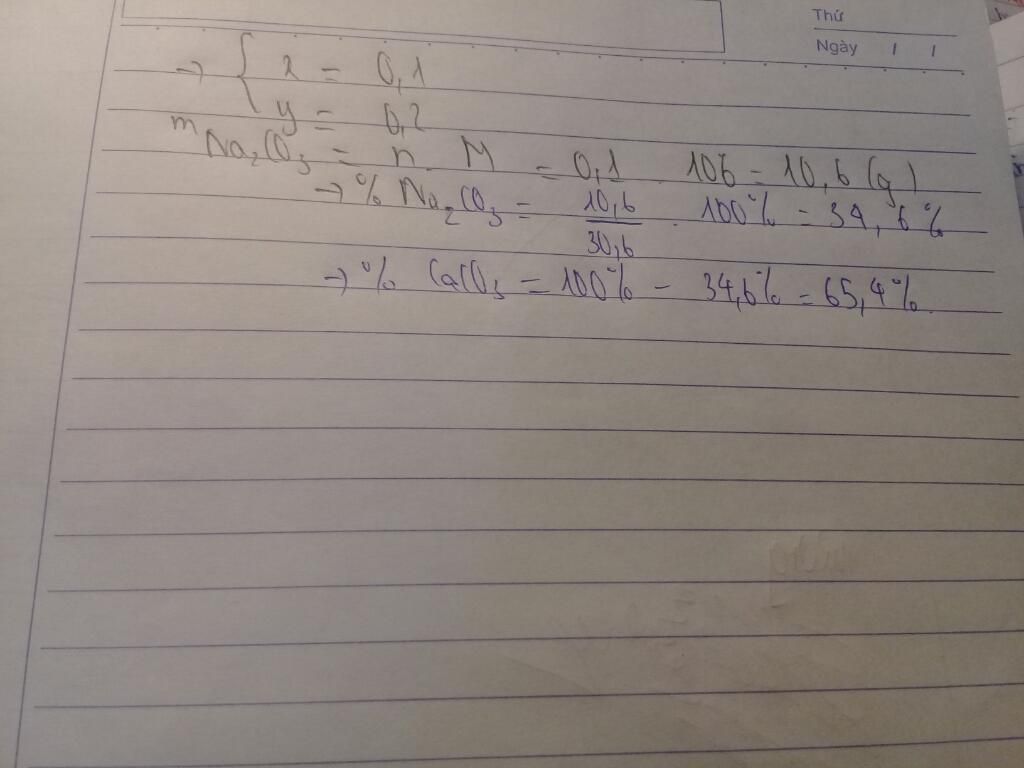 Thứ
Ngày / /
→ { x = 0,1
y = 0,2
mNa₂CO₃ = n . M = 0,1 . 106 = 10,6 (g)
→ % Na₂CO₃ = 10,6/30,6 . 100% = 34,6%
→ % CaCO₃ = 100% - 34,6% = 65,4%.